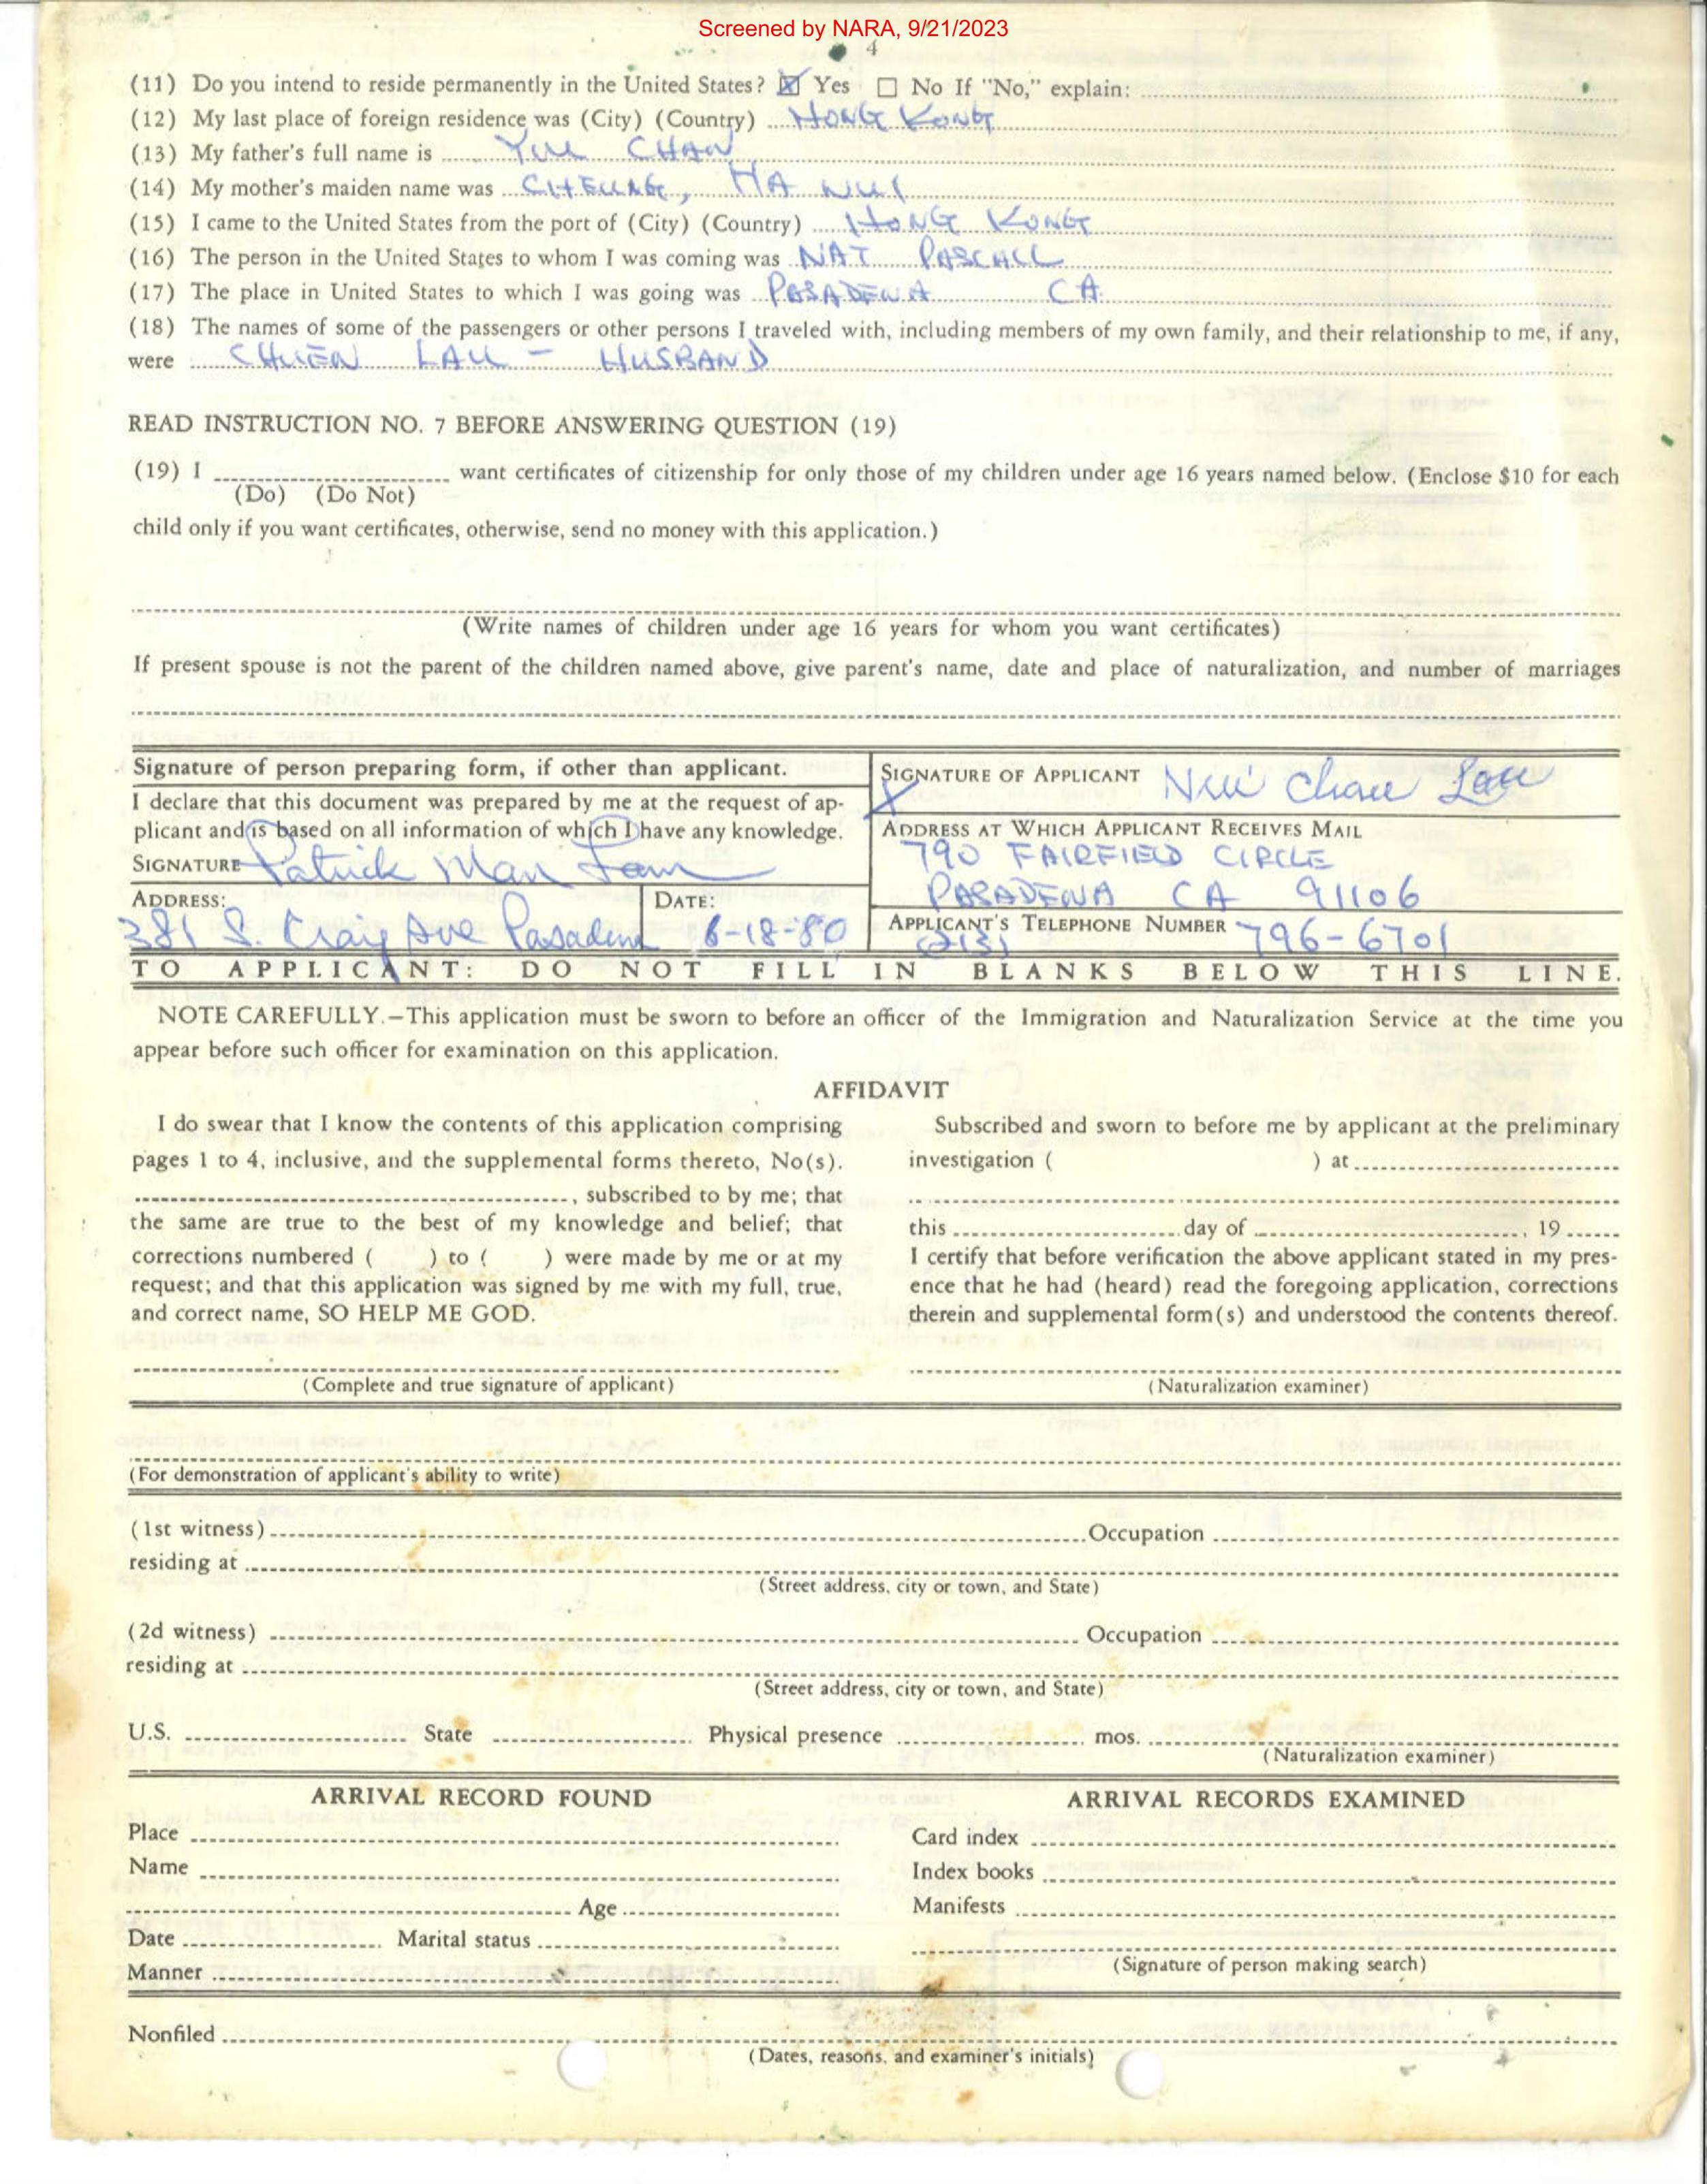 Screened by NARA, 9/21/2023
4
(11) Do you intend to reside permanently in the United States? ☒ Yes ☐ No If "No," explain:
(12) My last place of foreign residence was (City) (Country) HONG KONG
(13) My father's full name is YUU CHAN
(14) My mother's maiden name was CHEUNG, HA NUI
(15) I came to the United States from the port of (City) (Country) HONG KONG
(16) The person in the United States to whom I was coming was NAT PASCALL
(17) The place in United States to which I was going was PASADENA CA
(18) The names of some of the passengers or other persons I traveled with, including members of my own family, and their relationship to me, if any,
were CHUEN LAU - HUSBAND
READ INSTRUCTION NO. 7 BEFORE ANSWERING QUESTION (19)
(19) I want certificates of citizenship for only those of my children under age 16 years named below. (Enclose $10 for each
(Do) (Do Not)
child only if you want certificates, otherwise, send no money with this application.)
(Write names of children under age 16 years for whom you want certificates)
If present spouse is not the parent of the children named above, give parent's name, date and place of naturalization, and number of marriages
Signature of person preparing form, if other than applicant.
I declare that this document was prepared by me at the request of ap-
plicant and is based on all information of which I have any knowledge.
SIGNATURE Patrick Man
ADDRESS: DATE:
381 S. Craig Ave Pasadena 6-18-80
SIGNATURE OF APPLICANT Nui Chau Lau
X
ADDRESS AT WHICH APPLICANT RECEIVES MAIL
790 FAIRFIELD CIRCLE
PASADENA CA 91106
APPLICANT'S TELEPHONE NUMBER
(213) 796-6701
TO APPLICANT: DO NOT FILL IN BLANKS BELOW THIS LINE.
NOTE CAREFULLY.—This application must be sworn to before an officer of the Immigration and Naturalization Service at the time you
appear before such officer for examination on this application.
AFFIDAVIT
I do swear that I know the contents of this application comprising
pages 1 to 4, inclusive, and the supplemental forms thereto, No(s).
, subscribed to by me; that
the same are true to the best of my knowledge and belief; that
corrections numbered ( ) to ( ) were made by me or at my
request; and that this application was signed by me with my full, true,
and correct name, SO HELP ME GOD.
(Complete and true signature of applicant)
Subscribed and sworn to before me by applicant at the preliminary
investigation ( ) at
this day of , 19
I certify that before verification the above applicant stated in my pres-
ence that he had (heard) read the foregoing application, corrections
therein and supplemental form(s) and understood the contents thereof.
(Naturalization examiner)
(For demonstration of applicant's ability to write)
(1st witness) Occupation
residing at
(Street address, city or town, and State)
(2d witness) Occupation
residing at
(Street address, city or town, and State)
U.S. State Physical presence mos.
(Naturalization examiner)
ARRIVAL RECORD FOUND
Place
Name
Age
Date Marital status
Manner
ARRIVAL RECORDS EXAMINED
Card index
Index books
Manifests
(Signature of person making search)
Nonfiled
(Dates, reasons, and examiner's initials)